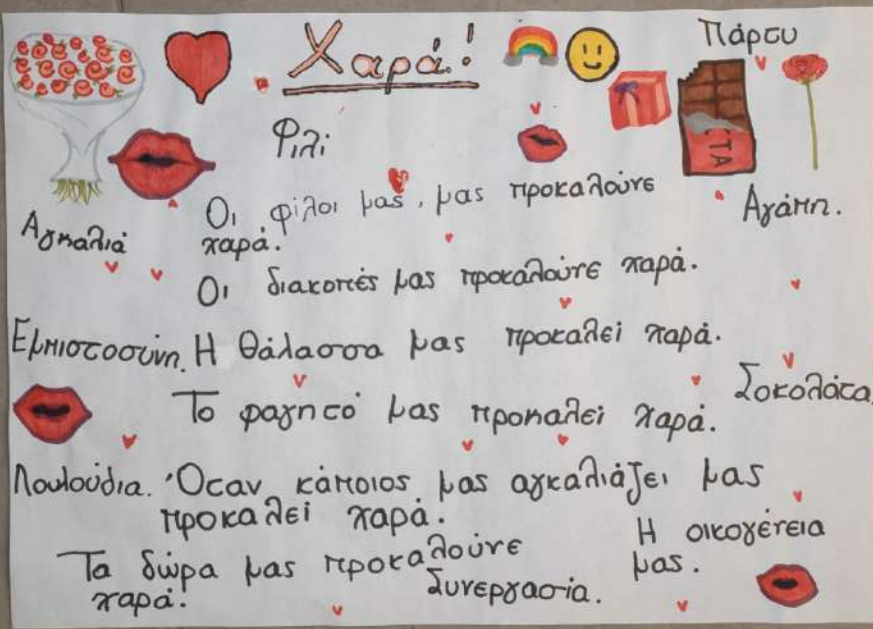 Χαρά!
Πάρτυ
Φιλί
ΤΑ
Οι φίλοι μας, μας προκαλούνε
χαρά.
Αγάπη.
Αγκαλιά
Οι διακοπές μας προκαλούνε χαρά.
Εμπιστοσύνη.
Η θάλασσα μας προκαλεί χαρά.
Σοκολάτα.
Το φαγητό μας προκαλεί χαρά.
Λουλούδια.
Όταν κάποιος μας αγκαλιάζει μας
προκαλεί χαρά.
Η οικογένεια
μας.
Τα δώρα μας προκαλούνε
χαρά.
Συνεργασία.